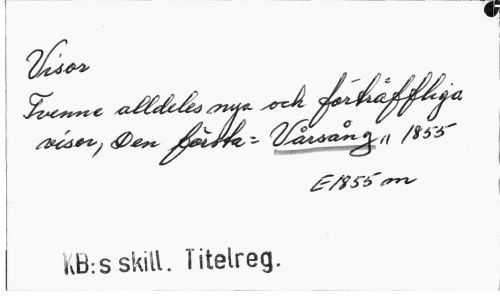 Visor
Tvenne alldeles nya och förträffliga
visor, Den första = Vårsång, 1855
E1855 m
KB:s skill. Titelreg.